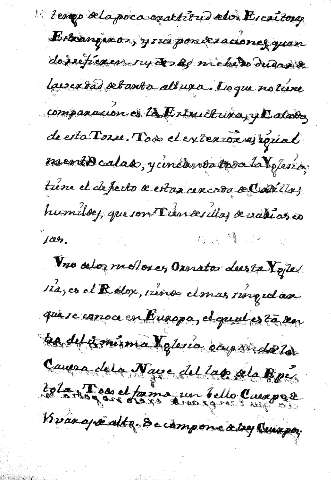 tengo de la poca exactitud de los Escritores
Estrangeros, y sus ponderaciones, quan
do refieren su
la verdad de tanta altura. Lo que no tiene
comparacion es la Estructura, y Calados
de esta Torre. Todo el exterior es igual
mente calado, y uniendo toda la Yglesia,
tiene el defecto de estar cercada de Casillas
humildes, que son Tiendesillas de varias co
sas.
Uno de los mejores Ornatos de esta Ygle
sia, es el Relox, sino el mas singular
que se conoce en Europa, el qual está den
tro de la misma Yglesia
de la Nave del lado de la Epis
tola. Todo el forma un bello Cuerpo de
Vivaras de alto. Se compone de tres Cuerpos,